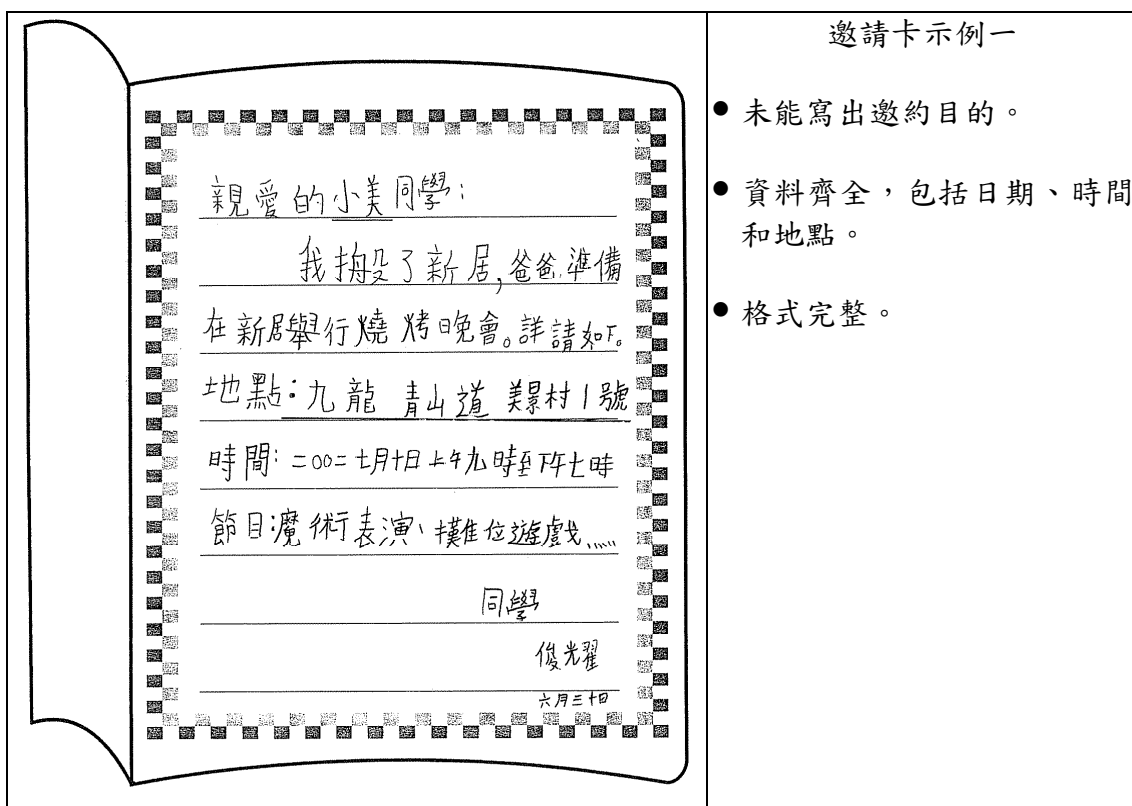 親愛的小美同學：
我搬了新居,爸爸準備
在新居舉行燒烤晚會。詳請如下。
地點：九龍 青山道 美景村1號
時間：二00二七月十日上午九時至下午七時
節目:魔術表演、攤位遊戲......
同學
俊光耀
六月三十日
邀請卡示例一
● 未能寫出邀約目的。
● 資料齊全，包括日期、時間
和地點。
● 格式完整。